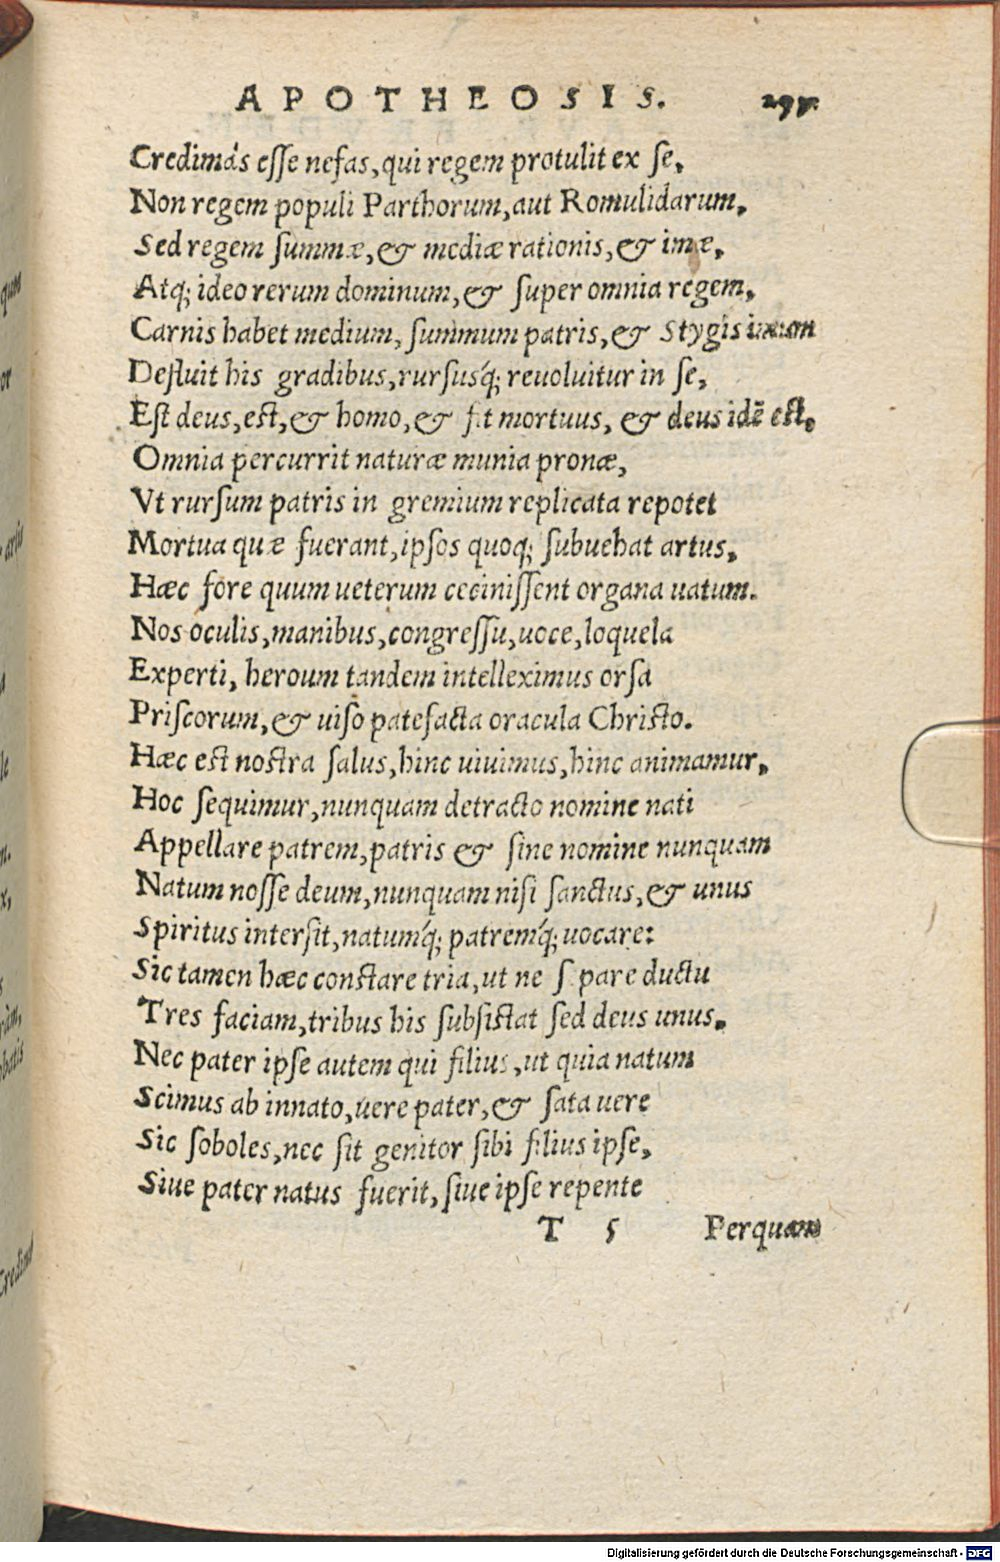 APOTHEOSIS. 297.
Credimás esse nefas, qui regem protulit ex se,
Non regem populi Parthorum, aut Romulidarum,
Sed regem summæ, & mediæ rationis, & imæ,
Atq; ideo rerum dominum, & super omnia regem,
Carnis habet medium, summum patris, & Stygis
Defluit his gradibus, rursusq́; reuoluitur in se,
Est deus, est, & homo, & fit mortuus, & deus idē est,
Omnia percurrit naturæ munia pronæ,
Vt rursum patris in gremium replicata repotet
Mortua quæ fuerant, ipsos quoq; subuehat artus,
Hæc fore quum ueterum cecinissent organa uatum.
Nos oculis, manibus, congressu, uoce, loquela
Experti, heroum tandem intelleximus orsa
Priscorum, & uiso patefacta oracula Christo.
Hæc est nostra salus, hinc uiuimus, hinc animamur,
Hoc sequimur, nunquam detracto nomine nati
Appellare patrem, patris & sine nomine nunquam
Natum nosse deum, nunquam nisi sanctus, & unus
Spiritus intersit, natumq́; patremq́; uocare:
Sic tamen hæc constare tria, ut ne s pare ductu
Tres faciam, tribus his subsistat sed deus unus,
Nec pater ipse autem qui filius, ut quia natum
Scimus ab innato, uere pater, & sata uere
Sic soboles, nec sit genitor sibi filius ipse,
Siue pater natus fuerit, siue ipse repente
T 5 Perquam
Digitalisierung gefördert durch die Deutsche Forschungsgemeinschaft - DFG